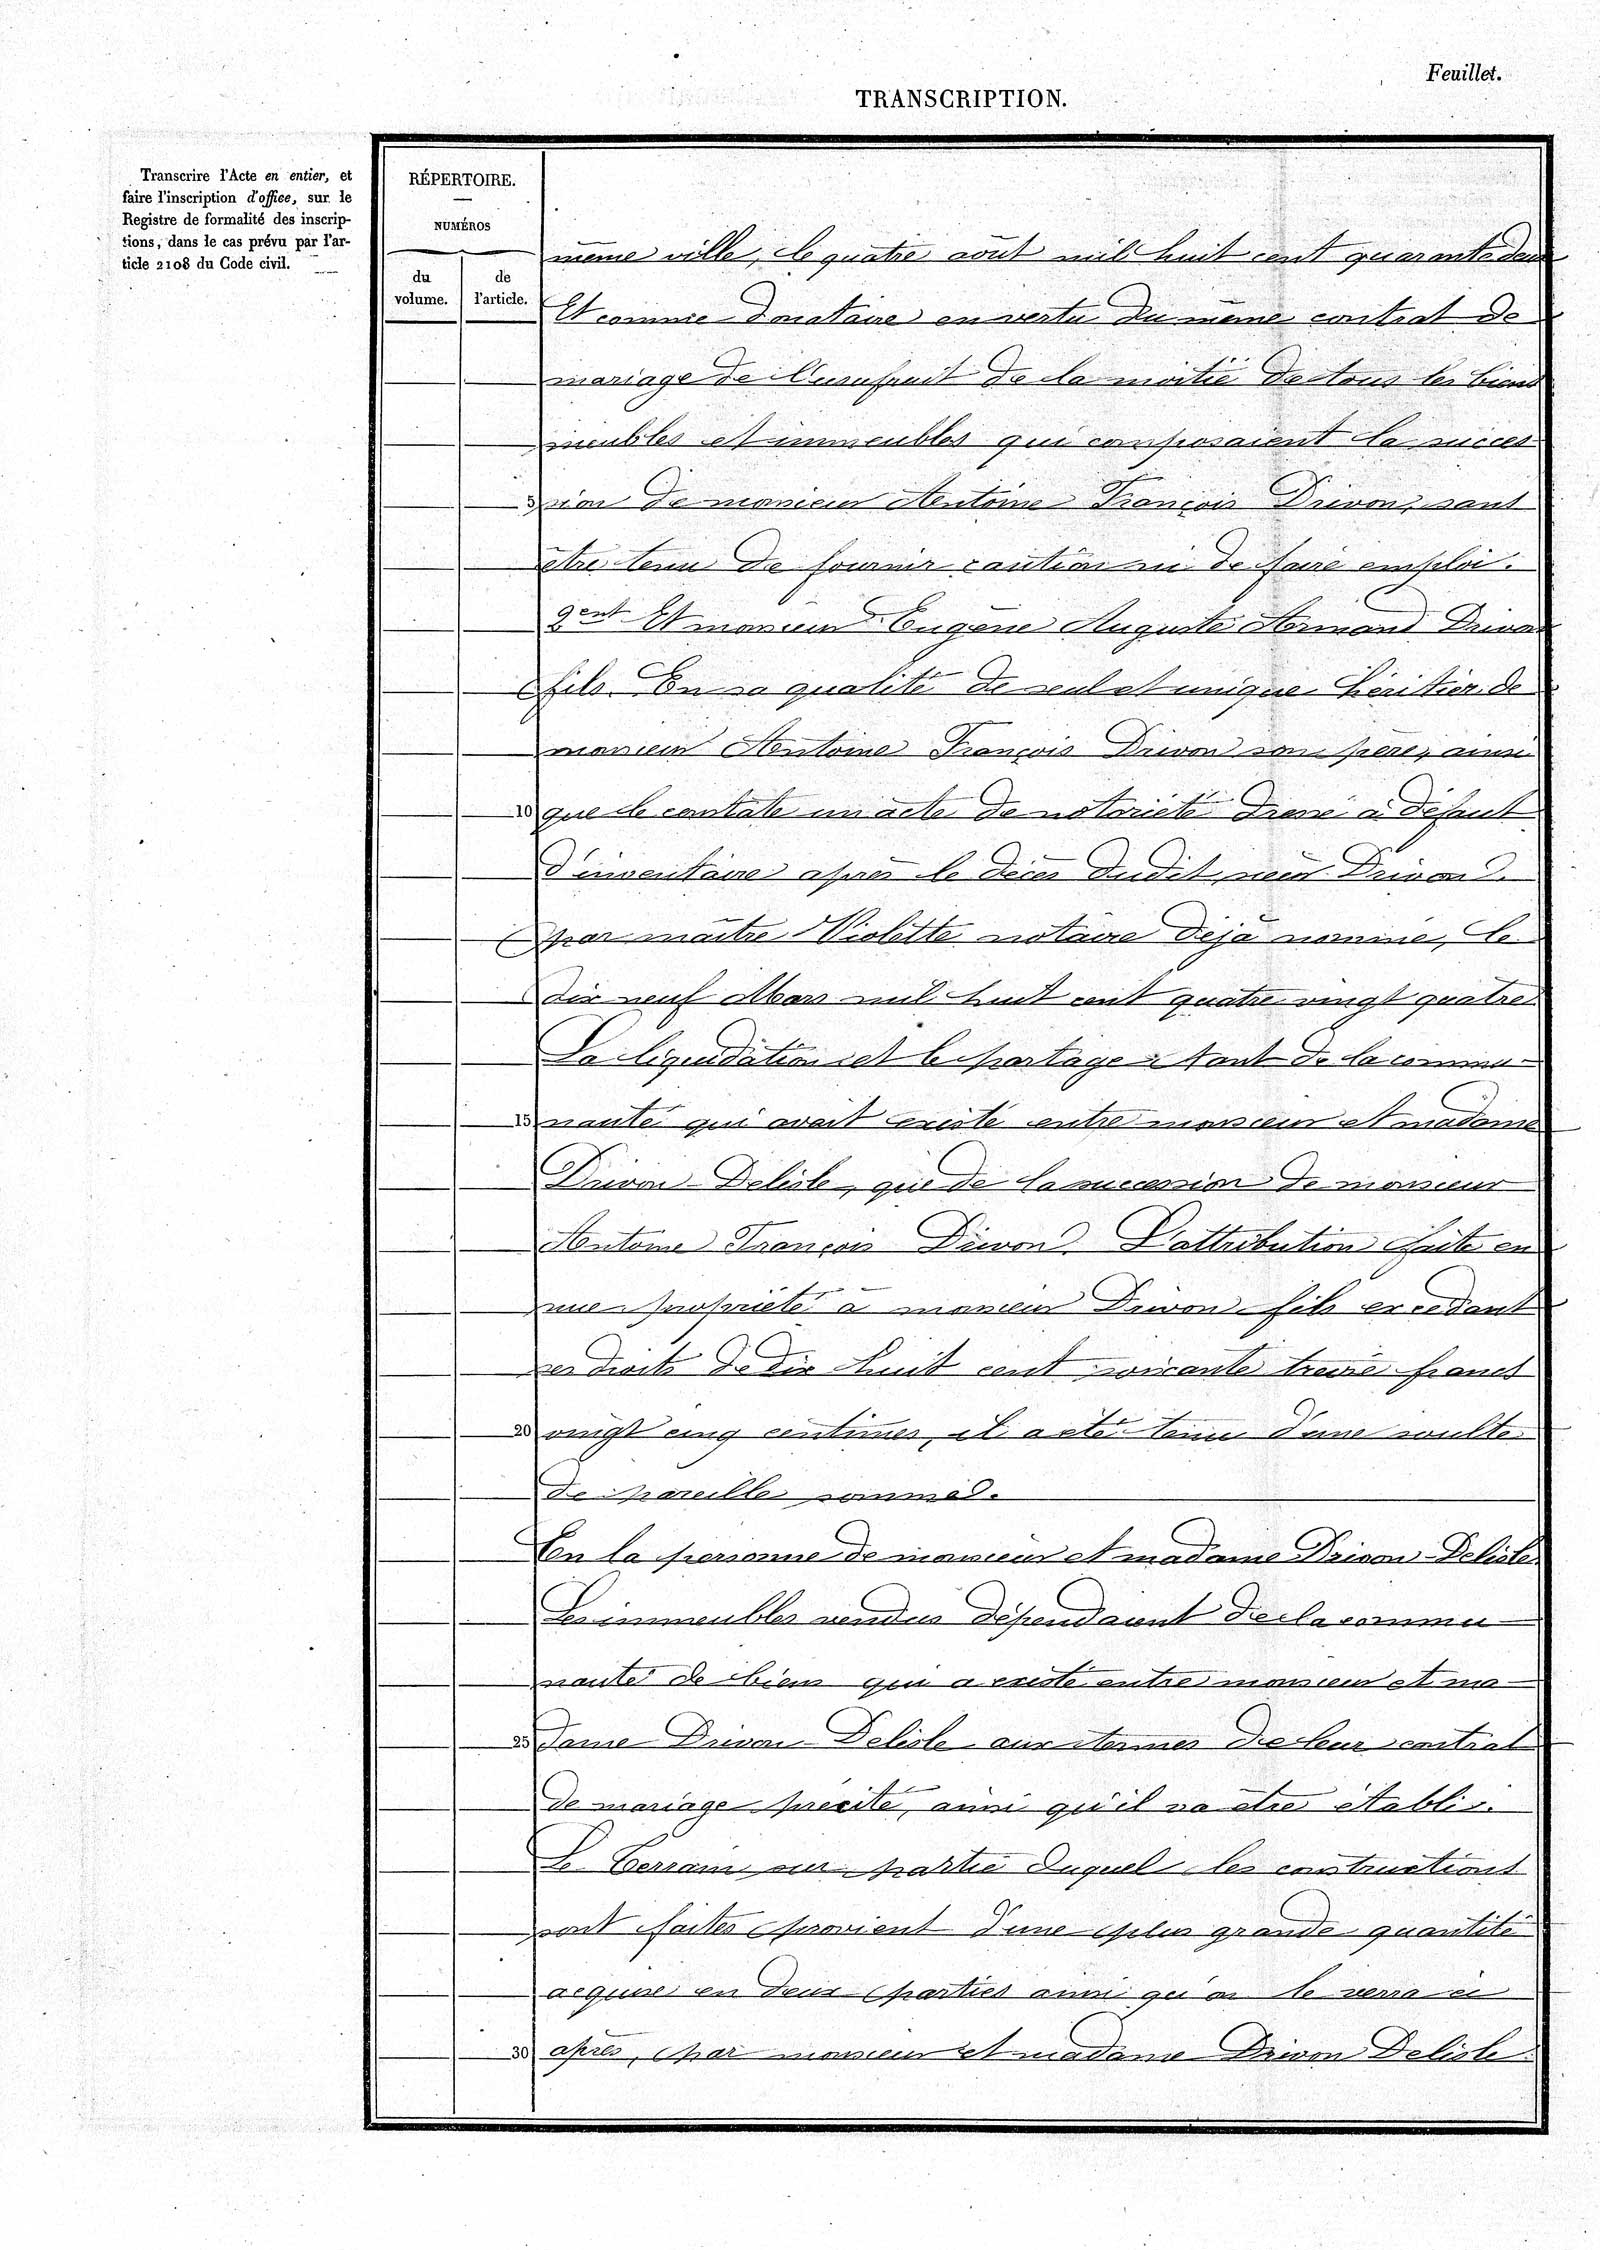 Feuillet.
TRANSCRIPTION.
Transcrire l'Acte en entier, et
faire l'inscription d'office, sur le
Registre de formalité des inscrip-
tions, dans le cas prévu par l'ar-
ticle 2108 du Code civil.
RÉPERTOIRE.
NUMÉROS
du
volume.
de
l'article.
même ville, le quatre août mil huit cent quarante deux
Et comme donataire en vertu du même contrat de
mariage de l'usufruit de la moitié de tous les biens
meubles et immeubles qui composaient la succes
5 sion de monsieur Antoine François Drivon, sans
être tenu de fournir caution ni de faire emploi.
2ent Et monsieur Eugène Auguste Armand Drivon
fils. En sa qualité de seul et unique héritier de
monsieur Antoine François Drivon son père, ainsi
10 que le constate un acte de notoriété dressé à défaut
d'inventaire après le décès dudit sieur Drivon.
par maître Violette notaire déjà nommé, le
dix neuf Mars mil huit cent quatre vingt quatre
La liquidation et le partage tant de la commu-
15 nauté qui avait existé entre monsieur et madame
Drivon-Delisle, que de la succession de monsieur
Antoine François Drivon. L'attribution faite en
nue-propriété à monsieur Drivon fils excédant
ses droits de dix huit cent soixante treize francs
20 vingt cinq centimes, il a été tenu d'une soulte
de pareille somme.
En la personne de monsieur et madame Drivon-Delisle
Les immeubles vendus dépendaient de la commu-
nauté de biens qui a existé entre monsieur et ma-
25 dame Drivon-Delisle aux termes de leur contrat
de mariage précité, ainsi qu'il va être établi.
Le Terrain sur partie duquel les constructions
sont faites provient d'une plus grande quantité
acquise en deux parties ainsi qu'on le verra ci
30 après, par monsieur et madame Drivon Delisle